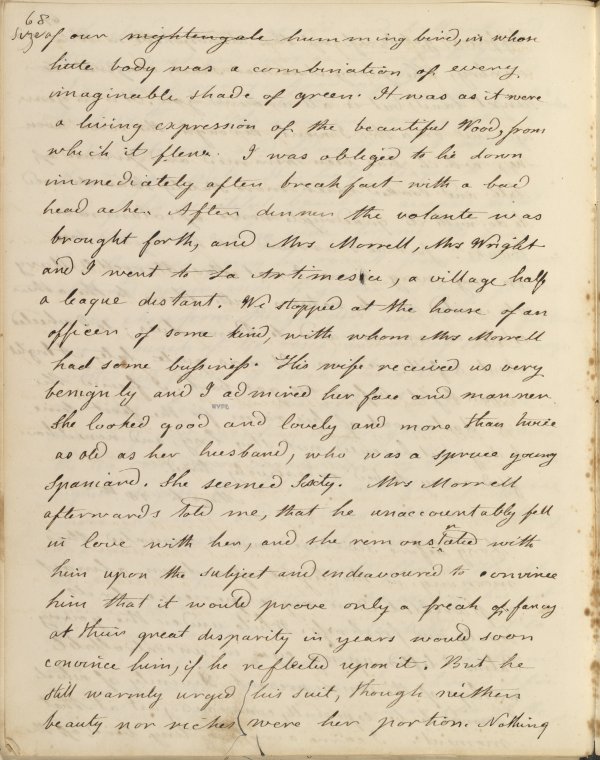 68
size of our nightengale humming bird, in whose
little body was a combination of every
imaginable shade of green. It was as it were
a living expression of the beautiful Wood, from
which it flew. I was obliged to lie down
immediately after breakfast with a bad
head ache. After dinner the volante was
brought forth, and Mrs Morrell, Mrs Wright
and I went to La Artimesia, a village half
a league distant. We stopped at the house of an
officer of some kind, with whom Mrs Morrell
had some bussiness. His wife received us very
benignly and I admired her face and manner
She looked good and lovely and more than twice
as old as her husband, who was a spruce young
Spaniard. She seemed Sixty. Mrs Morrell
afterwards told me, that he unaccountably fell
in love with her, and she remonstrated with
him upon the subject and endeavoured to convince
him that it would prove only a freak of fancy
at their great disparity in years would soon
convince him, if he reflected upon it. But he
still warmly urged his suit, though neither
beauty nor riches were her portion. Nothing